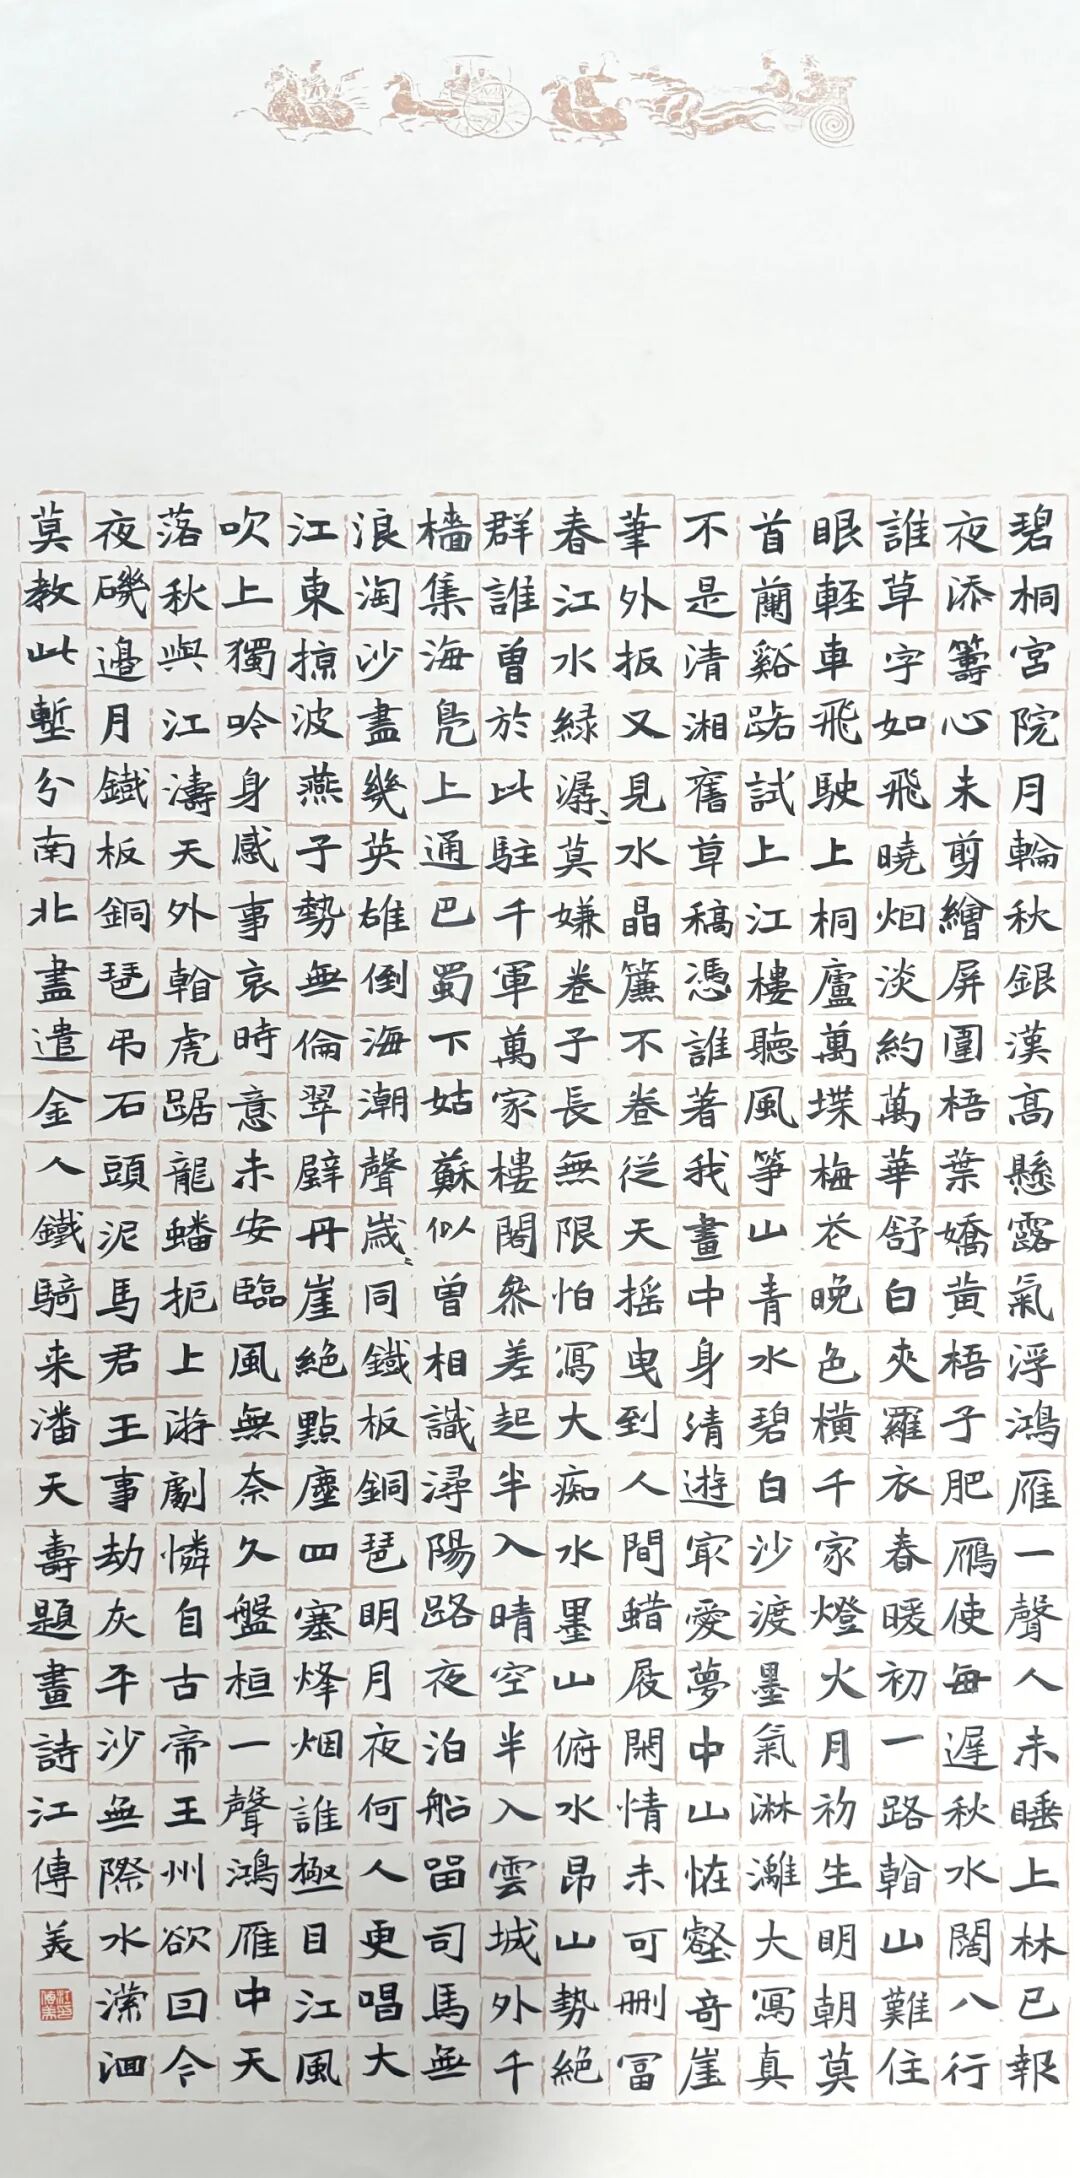 碧桐宮院月輪秋銀漢高懸露氣浮鴻雁一聲人未睡上林已報
夜添籌心未剪繪屏圍梧葉嬌黃梧子肥鴈使每遲秋水闊八行
誰草字如飛曉烟淡約萬華舒白夾羅衣春暖初一路翰山難住
眼輕車飛駛上桐廬萬堞梅花晚色橫千家燈火月初生明朝莫
首蘭谿踞試上江樓聽風箏山青水碧白沙渡墨氣淋灕大寫真
不是清湘舊草稿憑誰著我畫中身清遊寂愛夢中山怪壑奇崖
筆外扳又見水晶簾不卷從天摇曳到人間蜡屐閑情未可刪冨
春江水緑潺〻莫嫌卷子長無限怕寫大痴水墨山俯水昂山勢絕
群誰曾於此駐千軍萬家樓閣叅差起半入晴空半入雲城外千
檣集海凫上通巴蜀下姑蘇似曾相識潯陽路夜泊船留司馬無
浪淘沙盡幾英雄倒海潮聲歲〻同鐵板銅琶明月夜何人更唱大
江東掠波燕子勢無倫翠壁丹崖絕點塵四塞烽烟誰極目江風
吹上獨吟身感事哀時意未安臨風無奈久盤桓一聲鴻雁中天
落秋與江濤天外翰虎踞龍蟠扼上游劇憐自古帝王州欲回今
夜磯邊月鐵板銅琶弔石頭泥馬君王事劫灰平沙無際水瀠洄
莫教此塹分南北盡遣金人鐵騎来潘天壽題畫詩江傳美